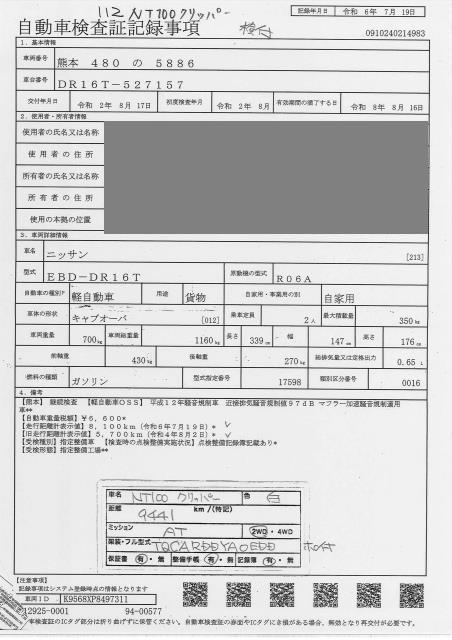 112 NT100 クリッパー
記録年月日 令和 6年 7月 19日
自動車検査証記録事項
0910240214983
1. 基本情報
車両番号 熊本 480 の 5886
車台番号 DR16T-527157
交付年月日 令和 2年 8月 17日 初度検査年月 令和 2年 8月 有効期間の満了する日 令和 8年 8月 16日
2. 使用者・所有者情報
使用者の氏名又は名称
使用者の住所
所有者の氏名又は名称
所有者の住所
使用の本拠の位置
3. 車両詳細情報
車名 ニッサン [213]
型式 EBD-DR16T 原動機の型式 R06A
自動車の種別 軽自動車 用途 貨物 自家用・事業用の別 自家用
車体の形状 キャブオーバ [012] 乗車定員 2人 最大積載量 350kg
車両重量 700kg 車両総重量 1160kg 長さ 339cm 幅 147cm 高さ 176cm
前軸重 430kg 後軸重 270kg 総排気量又は定格出力 0.65 L
燃料の種類 ガソリン 型式指定番号 17598 類別区分番号 0016
4. 備考
【熊本】 継続検査 【軽自動車OSS】 平成12年騒音規制車 近接排気騒音規制値97dB マフラー加速騒音規制適用
車**
【自動車重量税額】¥6,600*
【走行距離計表示値】8,100km(令和6年7月19日)*
【旧走行距離計表示値】5,700km(令和4年8月2日)*
【受検種別】指定整備車 【検査時の点検整備実施状況】点検整備記録簿記載あり*
【受検形態】指定整備工場**
車名 NT100 クリッパー 色 白
距離 9441 km/(特記)
ミッション AT 2WD・4WD
類別・フル型式 TQCARDDYA0EDD
保証書 有・無 整備手帳 有・無 記録簿 有・無
【注意事項】
記載事項はシステム登録時点の情報となります
車両ID K9568XP8497311
12925-0001 94-00577
車検査証のICタグ部分は折り曲げずに保管ください。自動車検査証の券面やICタグに余損がある場合、無効となり再交付が必要です。